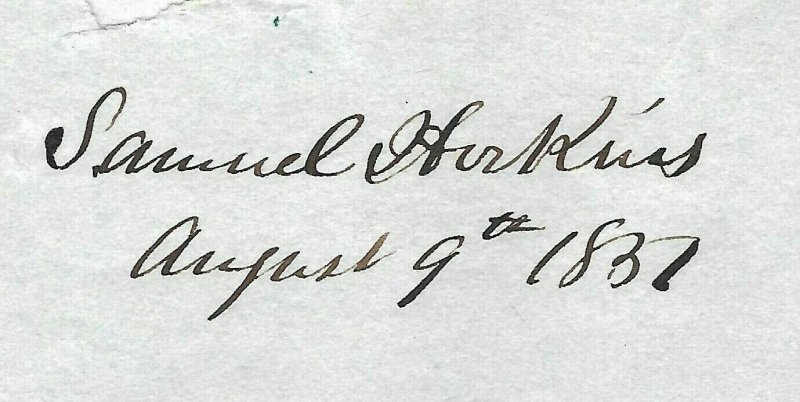 Samuel Horkins
August 9th 1837